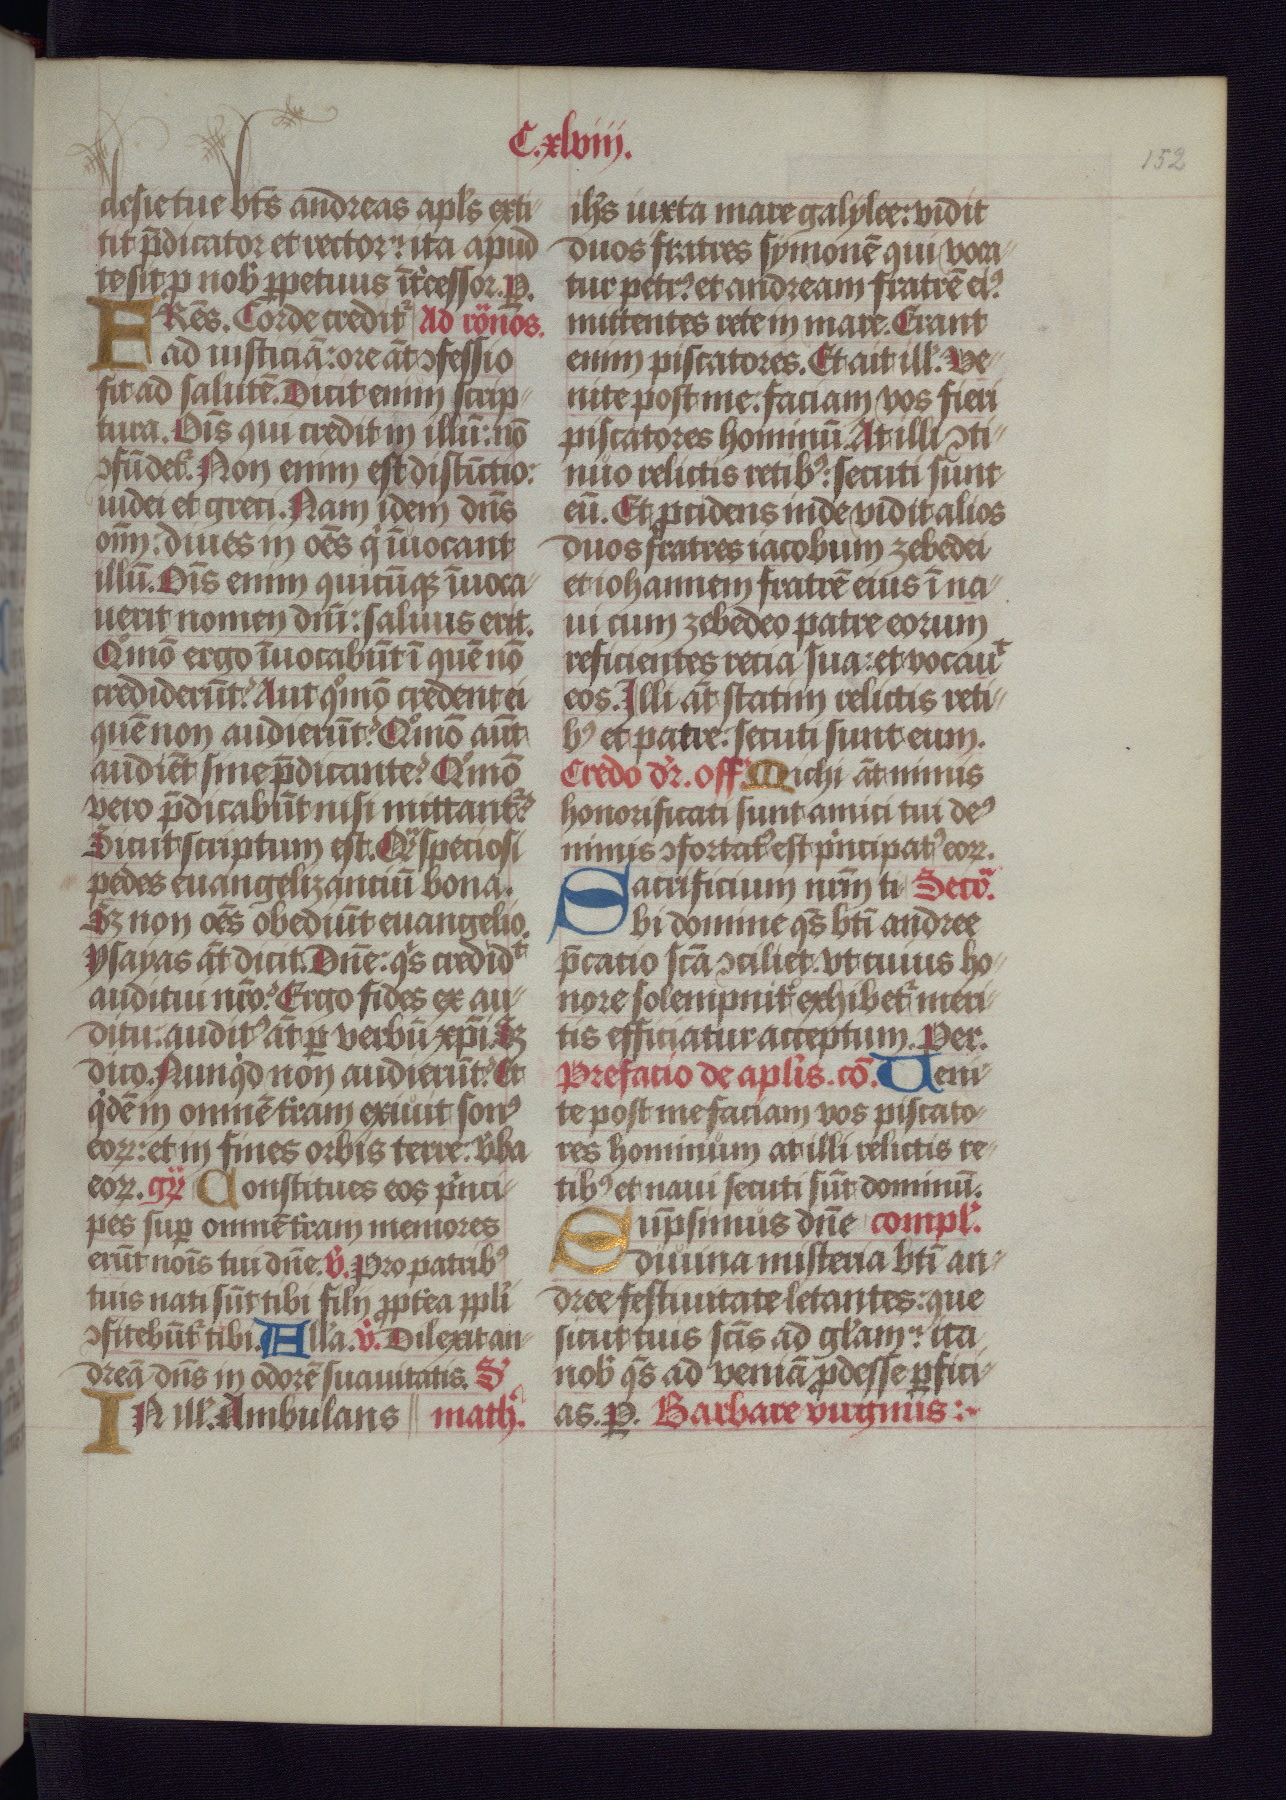 C.xlviii.
152
clesie tue bt̄s andreas apl's exti-
tit p̄dicator et rector: ita apud
te sit p nob̄ ꝑpetuus īt'cessor. P.
FRēs. Corde credit' Ad rōnos.
ad iusticiā: ore āt ↄfessio
fit ad salutē. Dicit enim scrip-
tura. Oīs qui credit in illū: nō
ↄfūdet'. Non enim est distīctio:
iudei et greci. Nam idem dn̄s
oīm: diues in oēs q' īuocant
illū. Oīs enim quicūqꝫ īuoca-
uerit nomen dn̄i: saluus erit.
Qo͞mo ergo īuocabūt ī quē nō
crediderūt? Aut qo͞mo credent ei
quē non audierūt? Qo͞mo aūt
audiēt sine p̄dicante? Qo͞mo
vero p̄dicabūt nisi mittant'?
Sicut scriptum est. Q̄ speciosi
pedes euangelizanciū bona.
Sꝫ non oēs obediūt euangelio.
Ysayas āt dicit. Dn̄e: q's credidt
auditui nr̄o? Ergo fides ex au-
ditu: audit9 āt ꝑ verbū xp̄i. Sꝫ
dico. Nunq'd non audierūt? Et
q'dē in omnē t'ram exiuit son9
eoꝝ: et in fines orbis terre: v'ba
eoꝝ. gr̄ Constitues eos p'nci-
pes suꝑ omnē t'ram memores
erūt noīs tui dn̄e. v̄. Pro patrib9
tuis nati sūt tibi filij ꝓpt'ea ppl'i
ↄfitebūt' tibi. All'a. v̄. Dilexit an-
dreā dn̄s in odorē suauitatis. S'
IN ill'. Ambulans math'.
ih's iuxta mare galylee: vidit
duos fratres symonē qui voca-
tur petr9 et andream fratrē ei9
mittentes rete in mare. Erant
enim piscatores. Et ait ill'. Ve-
nite post me: faciam vos fieri
piscatores hominū. At illi ↄti-
nuo relictis retib9: secuti sunt
eū. Et ꝓcidens inde vidit alios
duos fratres iacobum zebedei
et iohannem fratrē eius ī na-
ui cum zebedeo patre eorum
reficientes recia sua: et vocauit
eos. Illi āt statim relictis reti-
b9 et patre: secuti sunt eum.
Credo d'r. off' Michi āt nimis
honorificati sunt amici tui de9
nimis ↄfortat9 est p'ncipat9 eoꝝ.
Sacrificium nr̄m ti Secr̄.
bi domine q̄s bt̄i andree
p̄catio sc̄a ↄciliet. vt cuius ho-
nore solempnit' exhibet' meri-
tis efficiatur acceptum. Per.
Prefatio de apl'is. cō. Veni-
te post me faciam vos piscato-
res hominum at illi relictis re-
tib9 et naui secuti sūt dominū.
Sūpsimus dn̄e compl'.
diuina misteria bt̄i an-
dree festiuitate letantes: que
sicut tuis sc̄is ad gl'am: ita
nob̄ q̄s ad veniā ꝓdesse ꝑfici-
as. P. Barbare virginis:~